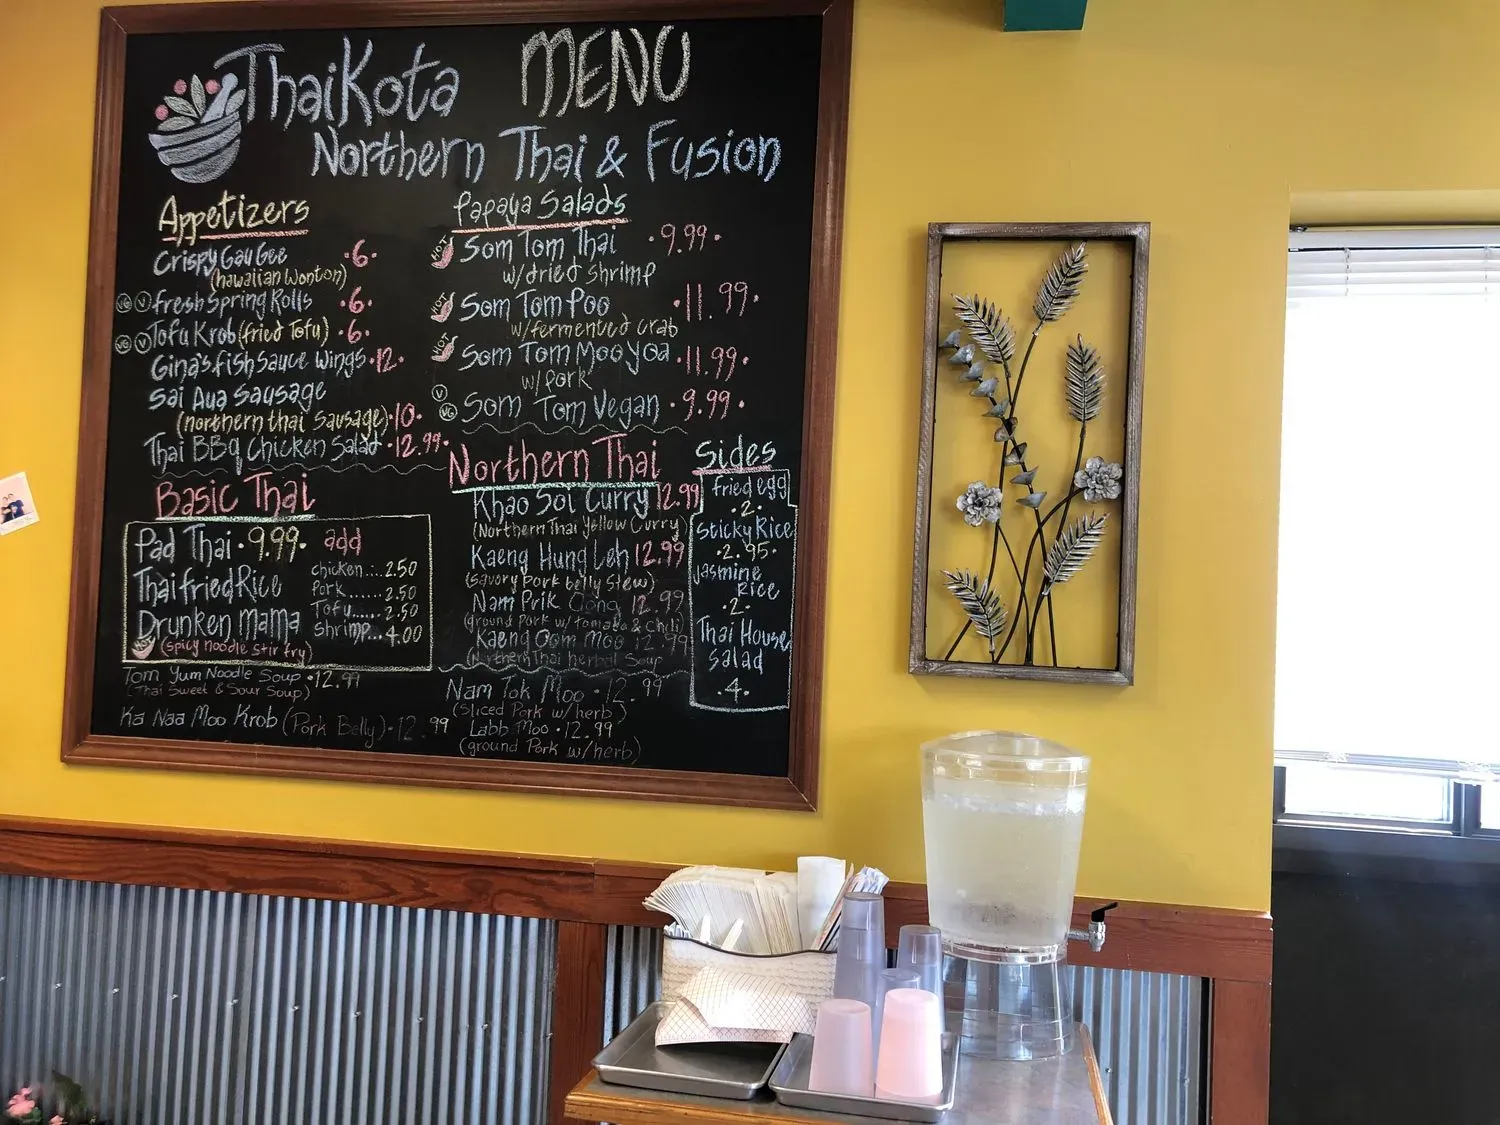 ThaiKota MENU
Northern Thai & Fusion
Appetizers
Crispy Gau Gee •6•
(hawaiian Wonton)
VG V fresh Spring Rolls •6•
VG V Tofu Krob (fried Tofu) •6•
Gina's fish Sauce Wings •12•
Sai Aua Sausage
(northern thai Sausage) •10•
Thai BBq Chicken Salad •12.99•
Basic Thai
Pad Thai •9.99•
Thai fried Rice
Drunken mama
HOT (spicy noodle stir fry)
add
chicken....2.50
Pork......2.50
Tofu.....2.50
Shrimp...4.00
Tom Yum Noodle Soup •12.99
(Thai Sweet & Sour Soup)
Ka Naa Moo Krob (Pork Belly) •12.99
Papaya Salads
HOT Som Tom Thai •9.99•
w/dried shrimp
HOT Som Tom Poo •11.99•
w/fermented crab
HOT Som Tom Moo Yoa •11.99•
w/pork
V VG Som Tom Vegan •9.99•
Northern Thai
Khao Soi Curry 12.99
(Northern Thai Yellow Curry)
Kaeng Hung Leh 12.99
(savory pork belly stew)
Nam Prik Oong 12.99
(ground pork w/tomato & chili)
Kaeng Oom Moo 12.99
(Northern Thai herbal Soup
Nam Tok Moo •12.99
(Sliced Pork w/herb)
Labb Moo •12.99
(ground Pork w/herb)
Sides
fried egg
•2•
Sticky Rice
•2.95•
Jasmine
Rice
•2•
Thai House
Salad
•4•